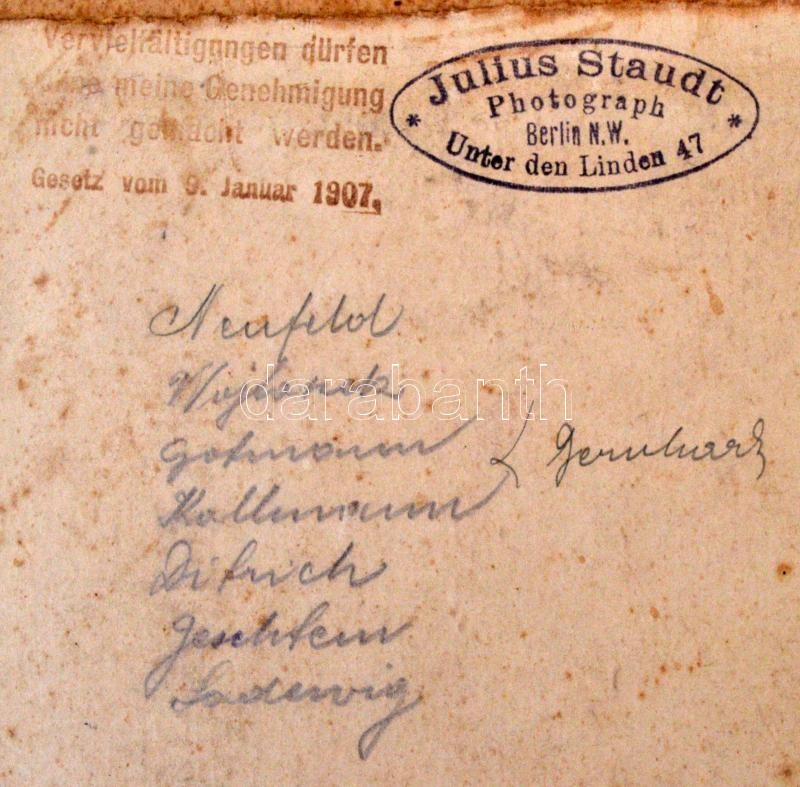 Vervielfältigungen dürfen
ohne meine Genehmigung
nicht gemacht werden.
Gesetz vom 9. Januar 1907.
Julius Staudt
Photograph
Berlin N.W.
Unter den Linden 47
Neufeld
gotmann
Kallmann
Gernhard
Ditrich
Ladewig
darabanth